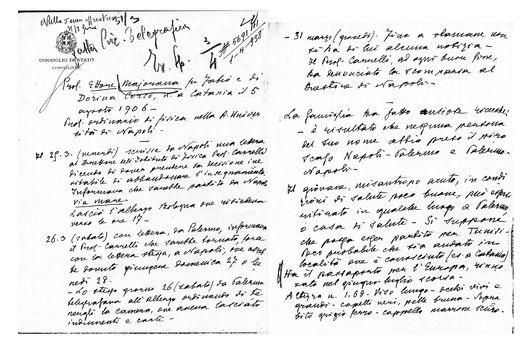 CONSIGLIO DI STATO
CONSIGLIERE
Prof. Ettore Majorana fu Fabio e di
Dorina Corso, n. a Catania il 5
agosto 1906 -
Prof. ordinario di fisica nella R. Univer
sità di Napoli -
25.3. (venerdì) scrisse da Napoli una lettera
al direttore dell'istituto di fisica Prof. Carrelli
dicendo di aver prendere la decisione ine
vitabile di abbandonare l'insegnamento.
Informava che sarebbe partito da Napoli
via mare -
Lasciò l'albergo Bologna ove risiedeva
verso le ore 17 -
26.3 (sabato) con lettera, da Palermo, informava
il Prof. Carrelli che sarebbe tornato forse
con la lettera stessa, a Napoli, ove avreb
be dovuto giungere domenica 27 o lu
nedì 28 -
- Lo stesso giorno 26 (sabato) da Palermo
telegrafava all'albergo ordinando di te
nergli la camera, ove aveva lasciato
indumenti e carte -
- 31 marzo (giovedì). Fino a stamane non
si ha di lui alcuna notizia -
Il Prof. Carrelli, ad ogni buon fine,
ha denunciato la scomparsa al
Questore di Napoli -
La famiglia ha fatto ricerche:
- è risultato che nessuna persona
del suo nome abbia preso il piro
scafo Napoli-Palermo e Palermo-
Napoli -
Il giovane, misantropo acuto, in condi
zioni di salute poco buone, può essersi
ritirato in qualche luogo a Palermo
o casa di salute - Si suppone
che possa esser partito per Tunisi -
Poco probabile che sia andato in
località ove è conosciuto (es. a Catania)
Ha il passaporto per l'Europa, rinno
vato nel giugno-luglio scorso -
Altezza m. 1.68 - Viso lungo - occhi vivi e
grandi - capelli neri, pelle bruna - Sopra
bito grigio ferro - cappello marrone scuro -